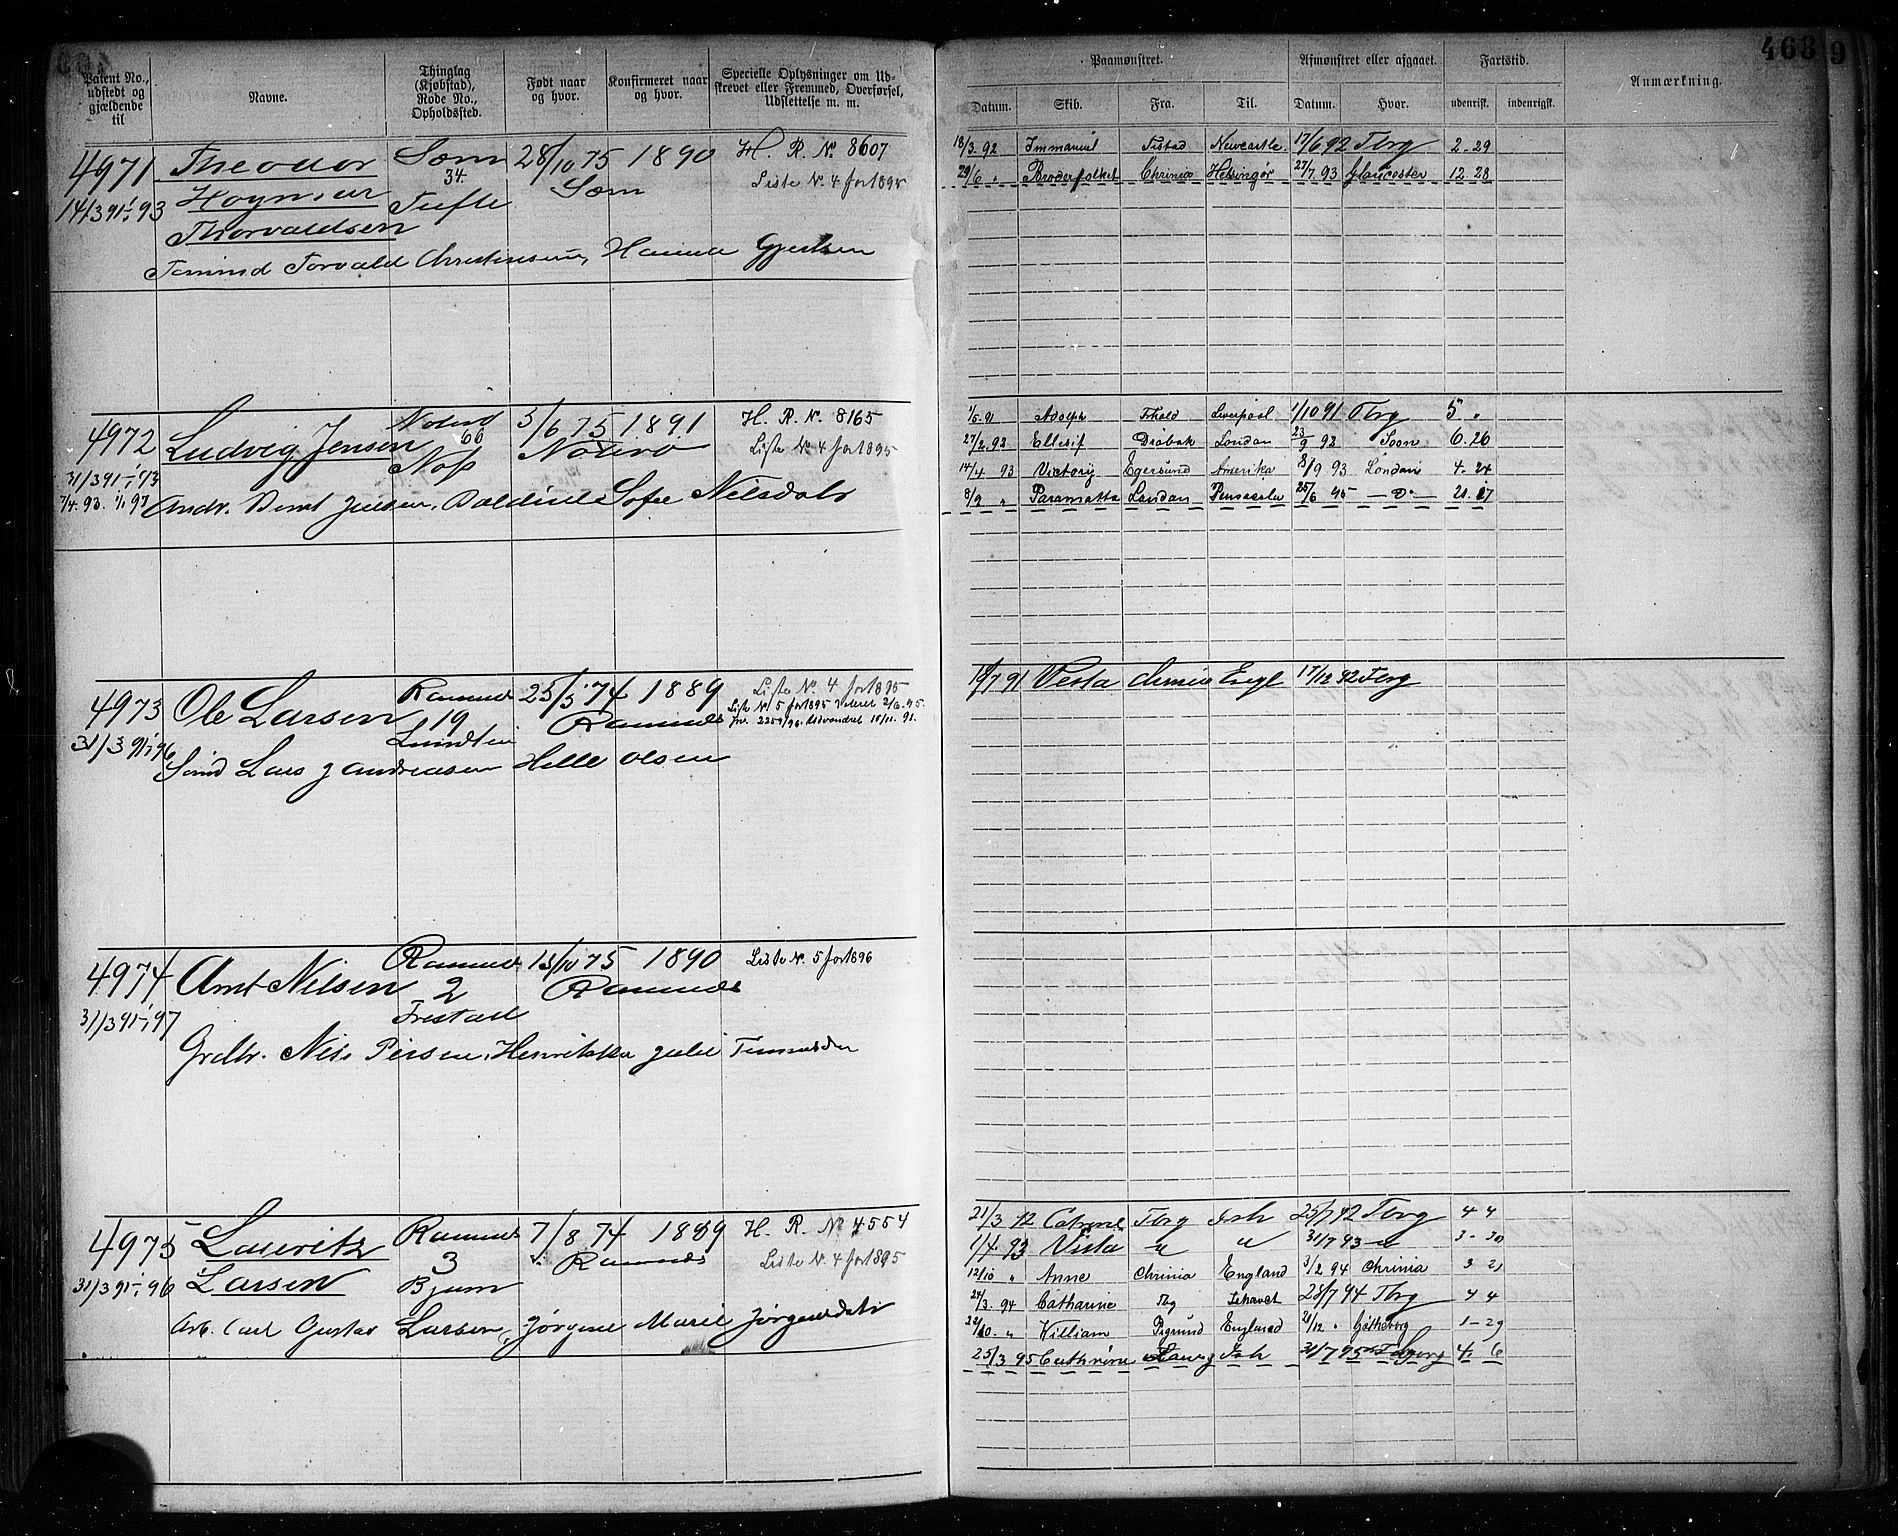 468 9
Patent No., udstedt og gjældende til
Navne.
Thinglag (Kjøbstad), Rode No., Opholdssted.
Født naar og hvor.
Konfirmeret naar og hvor.
Specielle Oplysninger om Udskrevet eller Fremmed, Overførsel, Udslettelse m. m.
Paamønstret.
Afmønstret eller afgaaet.
Fartstid.
Anmærkning.
Datum. Skib. Fra. Til. Datum. Hvor. udenrisk. indenrigsk.
4971 Theodor Sæm 28/10 75 1890 H. R. No. 8607
34. Sæm Liste No. 4 for 1895
14/3 91-1/1 93 Tufte
Thorvaldsen
Torvald Christensen, Gjertsen
18/3. 92 Immanuel Newcastle 17/6 92 Tbrg 2-29
29/6 " Broderfolket Chrinia Helsingør 27/7. 93 Glaucester 12 28
4972 Ludvig Jensen 66 3/6 75 1891 H. R. No. 8165
Liste No. 4 for 1895
31/3 91-1/1 93
7/4. 93. 1/1 97 Andr. Bernt Jensen, Sofie Nilsdatr
1/5. 91 Adolph Liverpool 1/10 91 Tbrg 5 "
27/2. 92 Ellesif Drøbak London 23/9 92 Soon 6. 26
14/4 93 Victoria Egersund Amerika 8/9 93 London 4. 24
8/9 " Paramatta London Pensacola 25/6 95 — Do — 21. 17
4973 Ole Larsen Ramnes 25/5 74 1889 Liste No. 4 for 1895
19 Ramnes Liste No. 5 for 1895 2/6. 95.
31/3 91-1/1 96 Jnr. 2250/96. Udvandret 10/11. 91.
Lars J Andreasen Helle Olsen
10/7 91 Vesta Chrinia Engl 17/12 92 Tbrg
4974 Arnt Nilsen Ramnes 13/10 75 1890 Liste No. 5 for 1896
2 Ramnes
31/3 91-1/1 97
Grdbr. Nils Persen, Julie
4975 Lauritz Ramnes 7/8 74 1889 H. R. No 4554
3 Ramnes Liste No. 4 for 1895
31/3 91-1/1 96 Larsen Bjune
Arb. Carl Gustav Larsen, Jørgine Marie Jørgensdatr
21/3 92 Catrine Tbrg 25/7 92 Tbrg 4 4
1/4. 93 Vesta " " 31/7 93 " 3-30
12/10 " Anne Chrinia England 3/2 94 Chrinia 3 21
24/3. 94 Catharine Tbg Ishavet 28/7 94 Tbrg 4 4
22/10. " William Prgrund England 21/12 " Gøtheborg 1-29
25/3 95 Cathrine Ish 31/7 95 4. 6